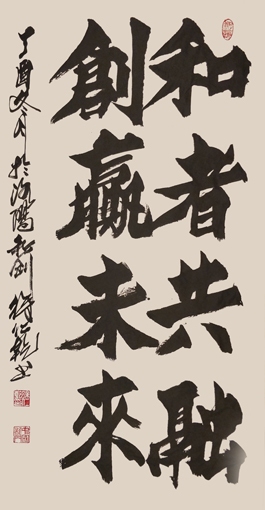 和者共融
創贏未來
丁酉冬月於洛陽
書